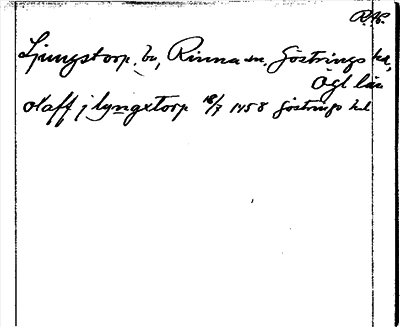 R.A.
Ljungstorp, by, Rinna sn, Göstrings hd,
Ögl län
olaff j lyngxtorp 18/7 1458 Göstrings hd